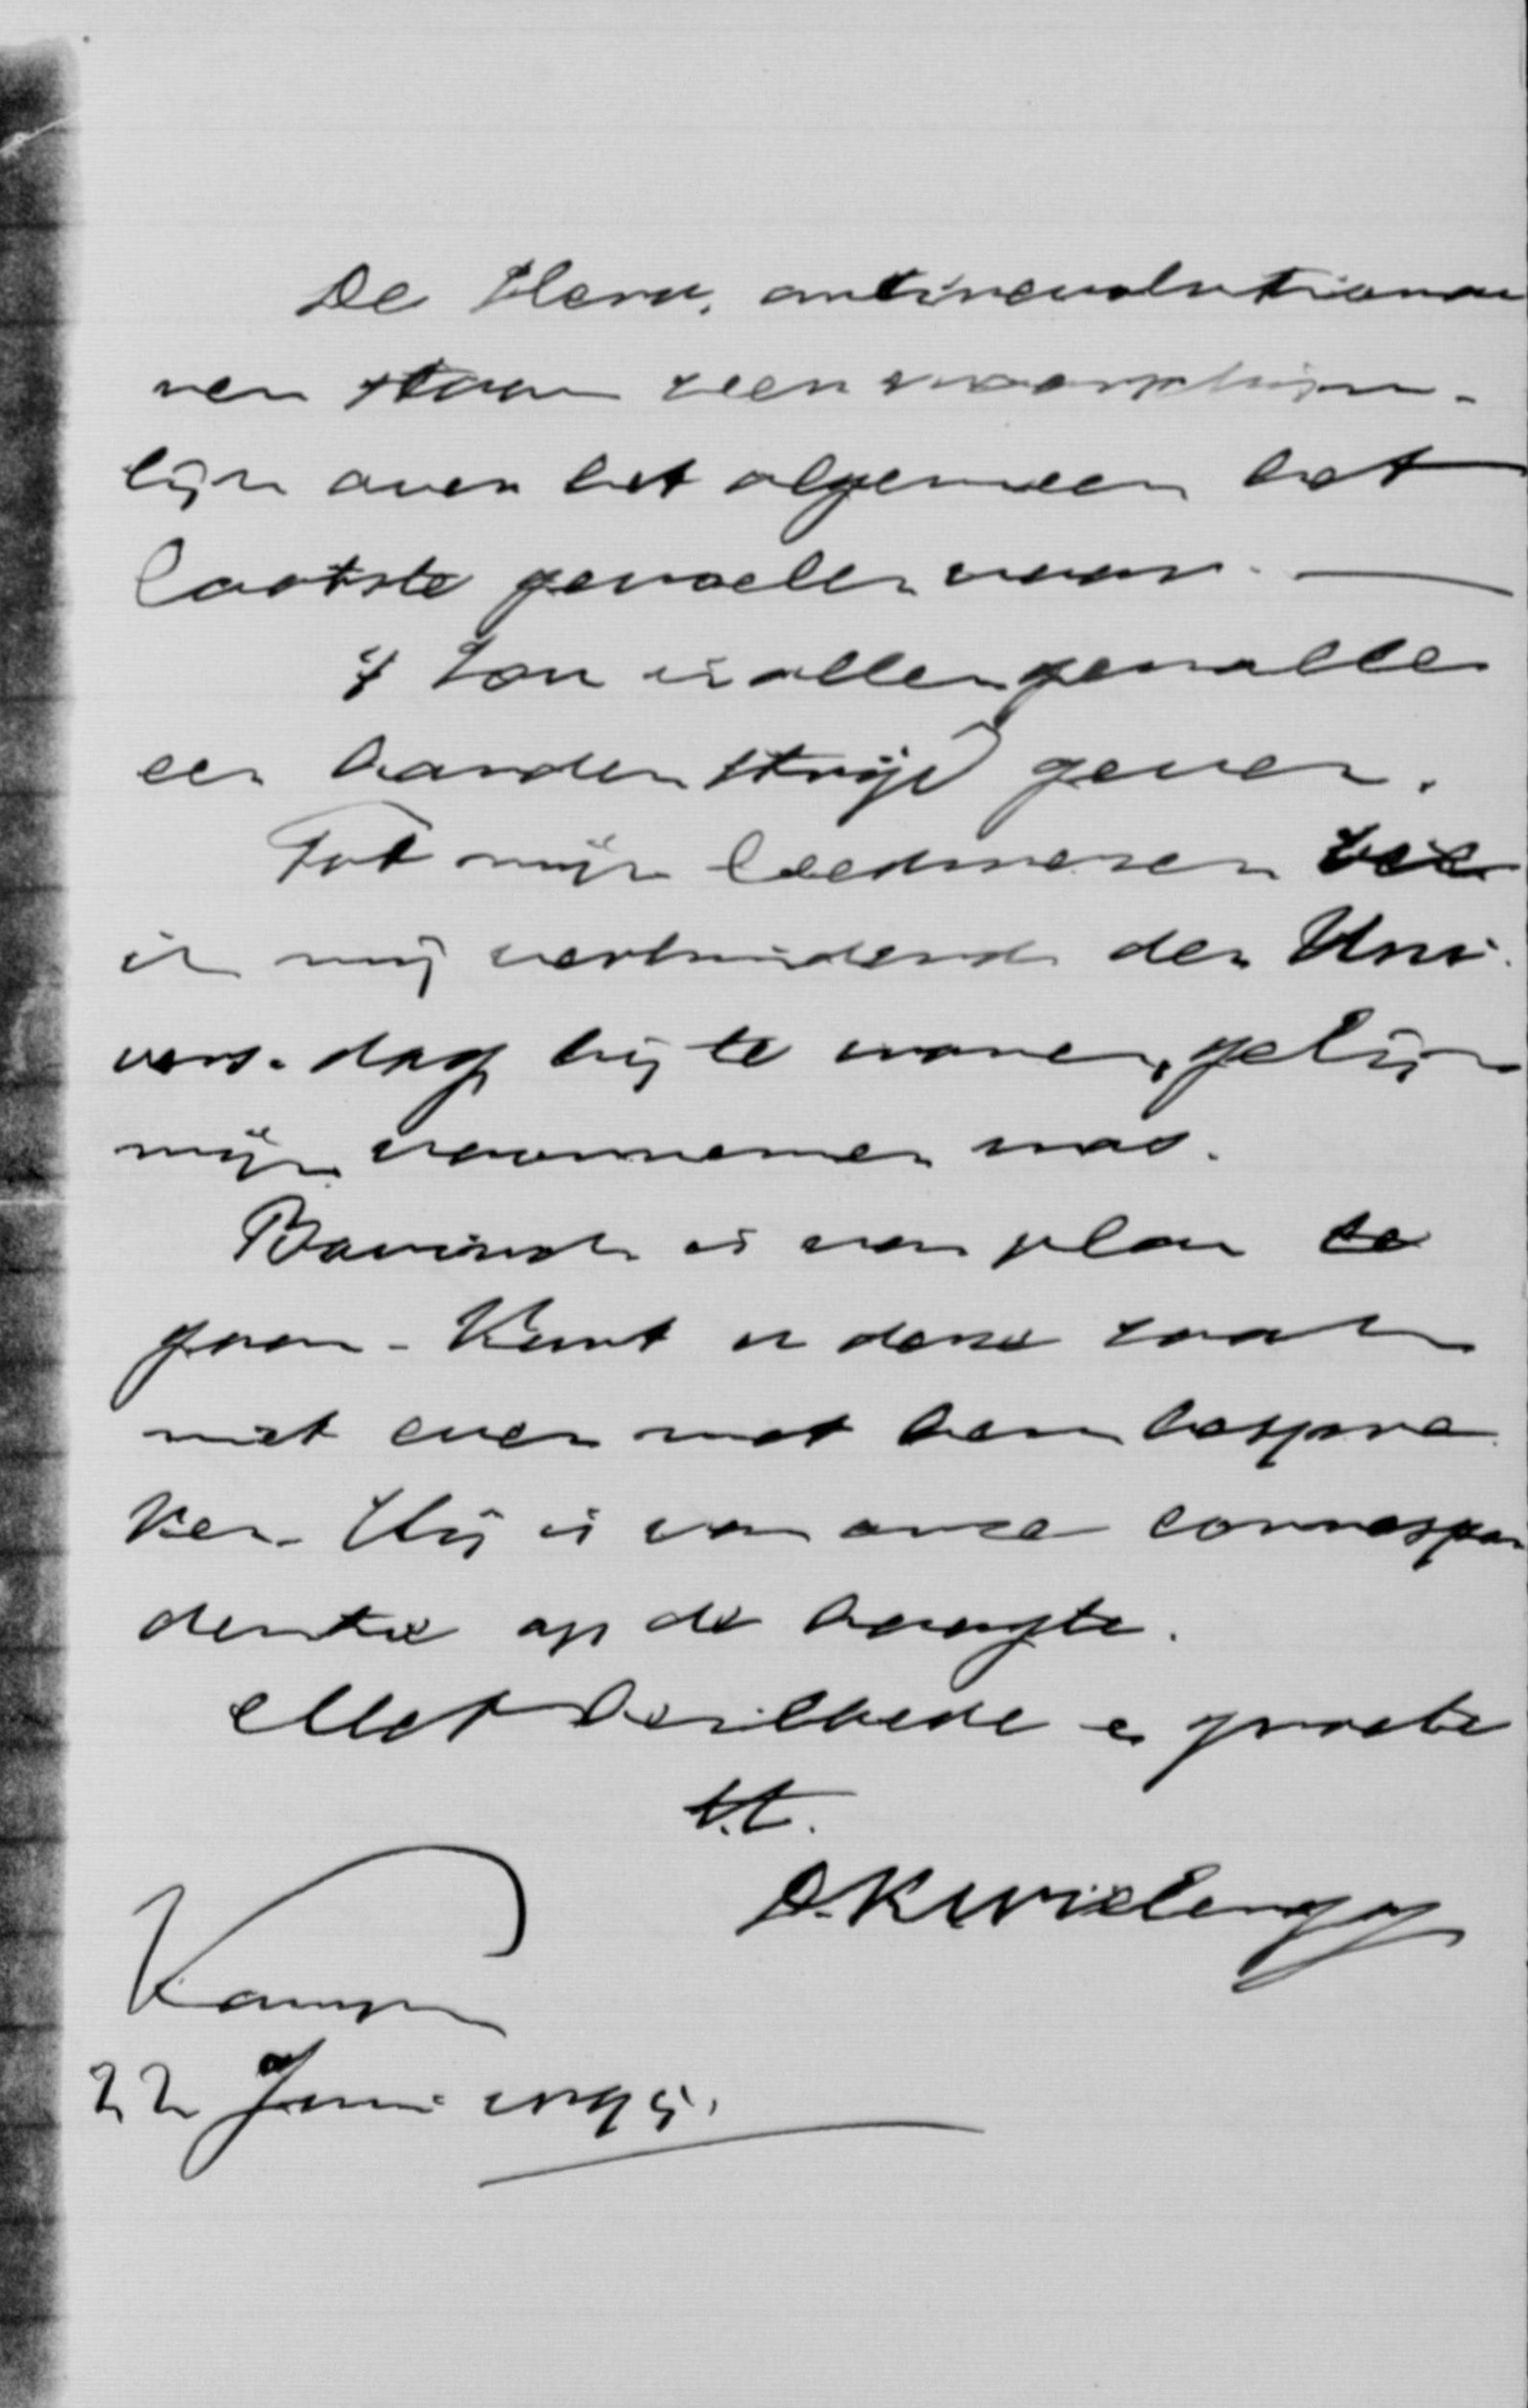 De Herv. antirevolutionai
ren staan zeer waarschijn-
lijk over het algemeen het
laatste gevoelen voor. —
't Zou in allen gevalle
een harden strijd geven.
Tot mijn leedwezen ben
ik mij verhinderd den Uni
vers. dag bij te wonen, gelijk
mijn voornemen was.
Bavinck is van plan te
gaan. Kunt u deze zaak
niet even met hem bespre
ken. Hij is van onze correspon
dentie op de hoogte.
Met heilbede en groete
t.t.
D.K. Wielenga
Kampen
22 Juni 1895.